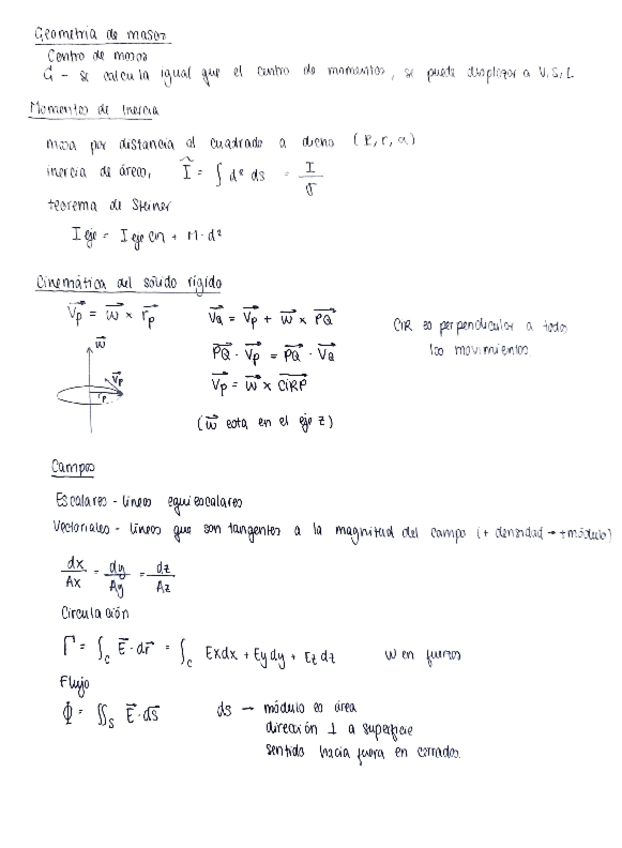 Geometría de masas
Centro de masas
G - se calcula igual que el centro de momentos, se puede desplazar a V, S, L
Momentos de inercia
masa por distancia al cuadrado a dicho (P, r, a)
inercia de áreas, Ĩ = ∫ d² ds = I/σ
teorema de Steiner
I eje = I eje cm + M·d²
Cinemática del sólido rígido
V⃗p = w⃗ × r⃗p    V⃗Q = V⃗p + w⃗ × PQ⃗    CIR es perpendicular a todos
PQ⃗ · V⃗p = PQ⃗ · V⃗Q    los movimientos
w⃗    V⃗p = w⃗ × CIRP⃗
V⃗p
rp
(w⃗ esta en el eje z)
Campos
Escalares - lineas equiescalares
Vectoriales - lineas que son tangentes a la magnitud del campo (+ densidad → + módulo)
dx/Ax = dy/Ay = dz/Az
Circulación
Γ = ∫c E⃗·dr⃗ = ∫c Exdx + Eydy + Ezdz    W en fuerzas
Flujo
Φ = ∬s E⃗·ds⃗    ds → módulo es área
dirección ⊥ a superficie
sentido hacia fuera en cerrados.